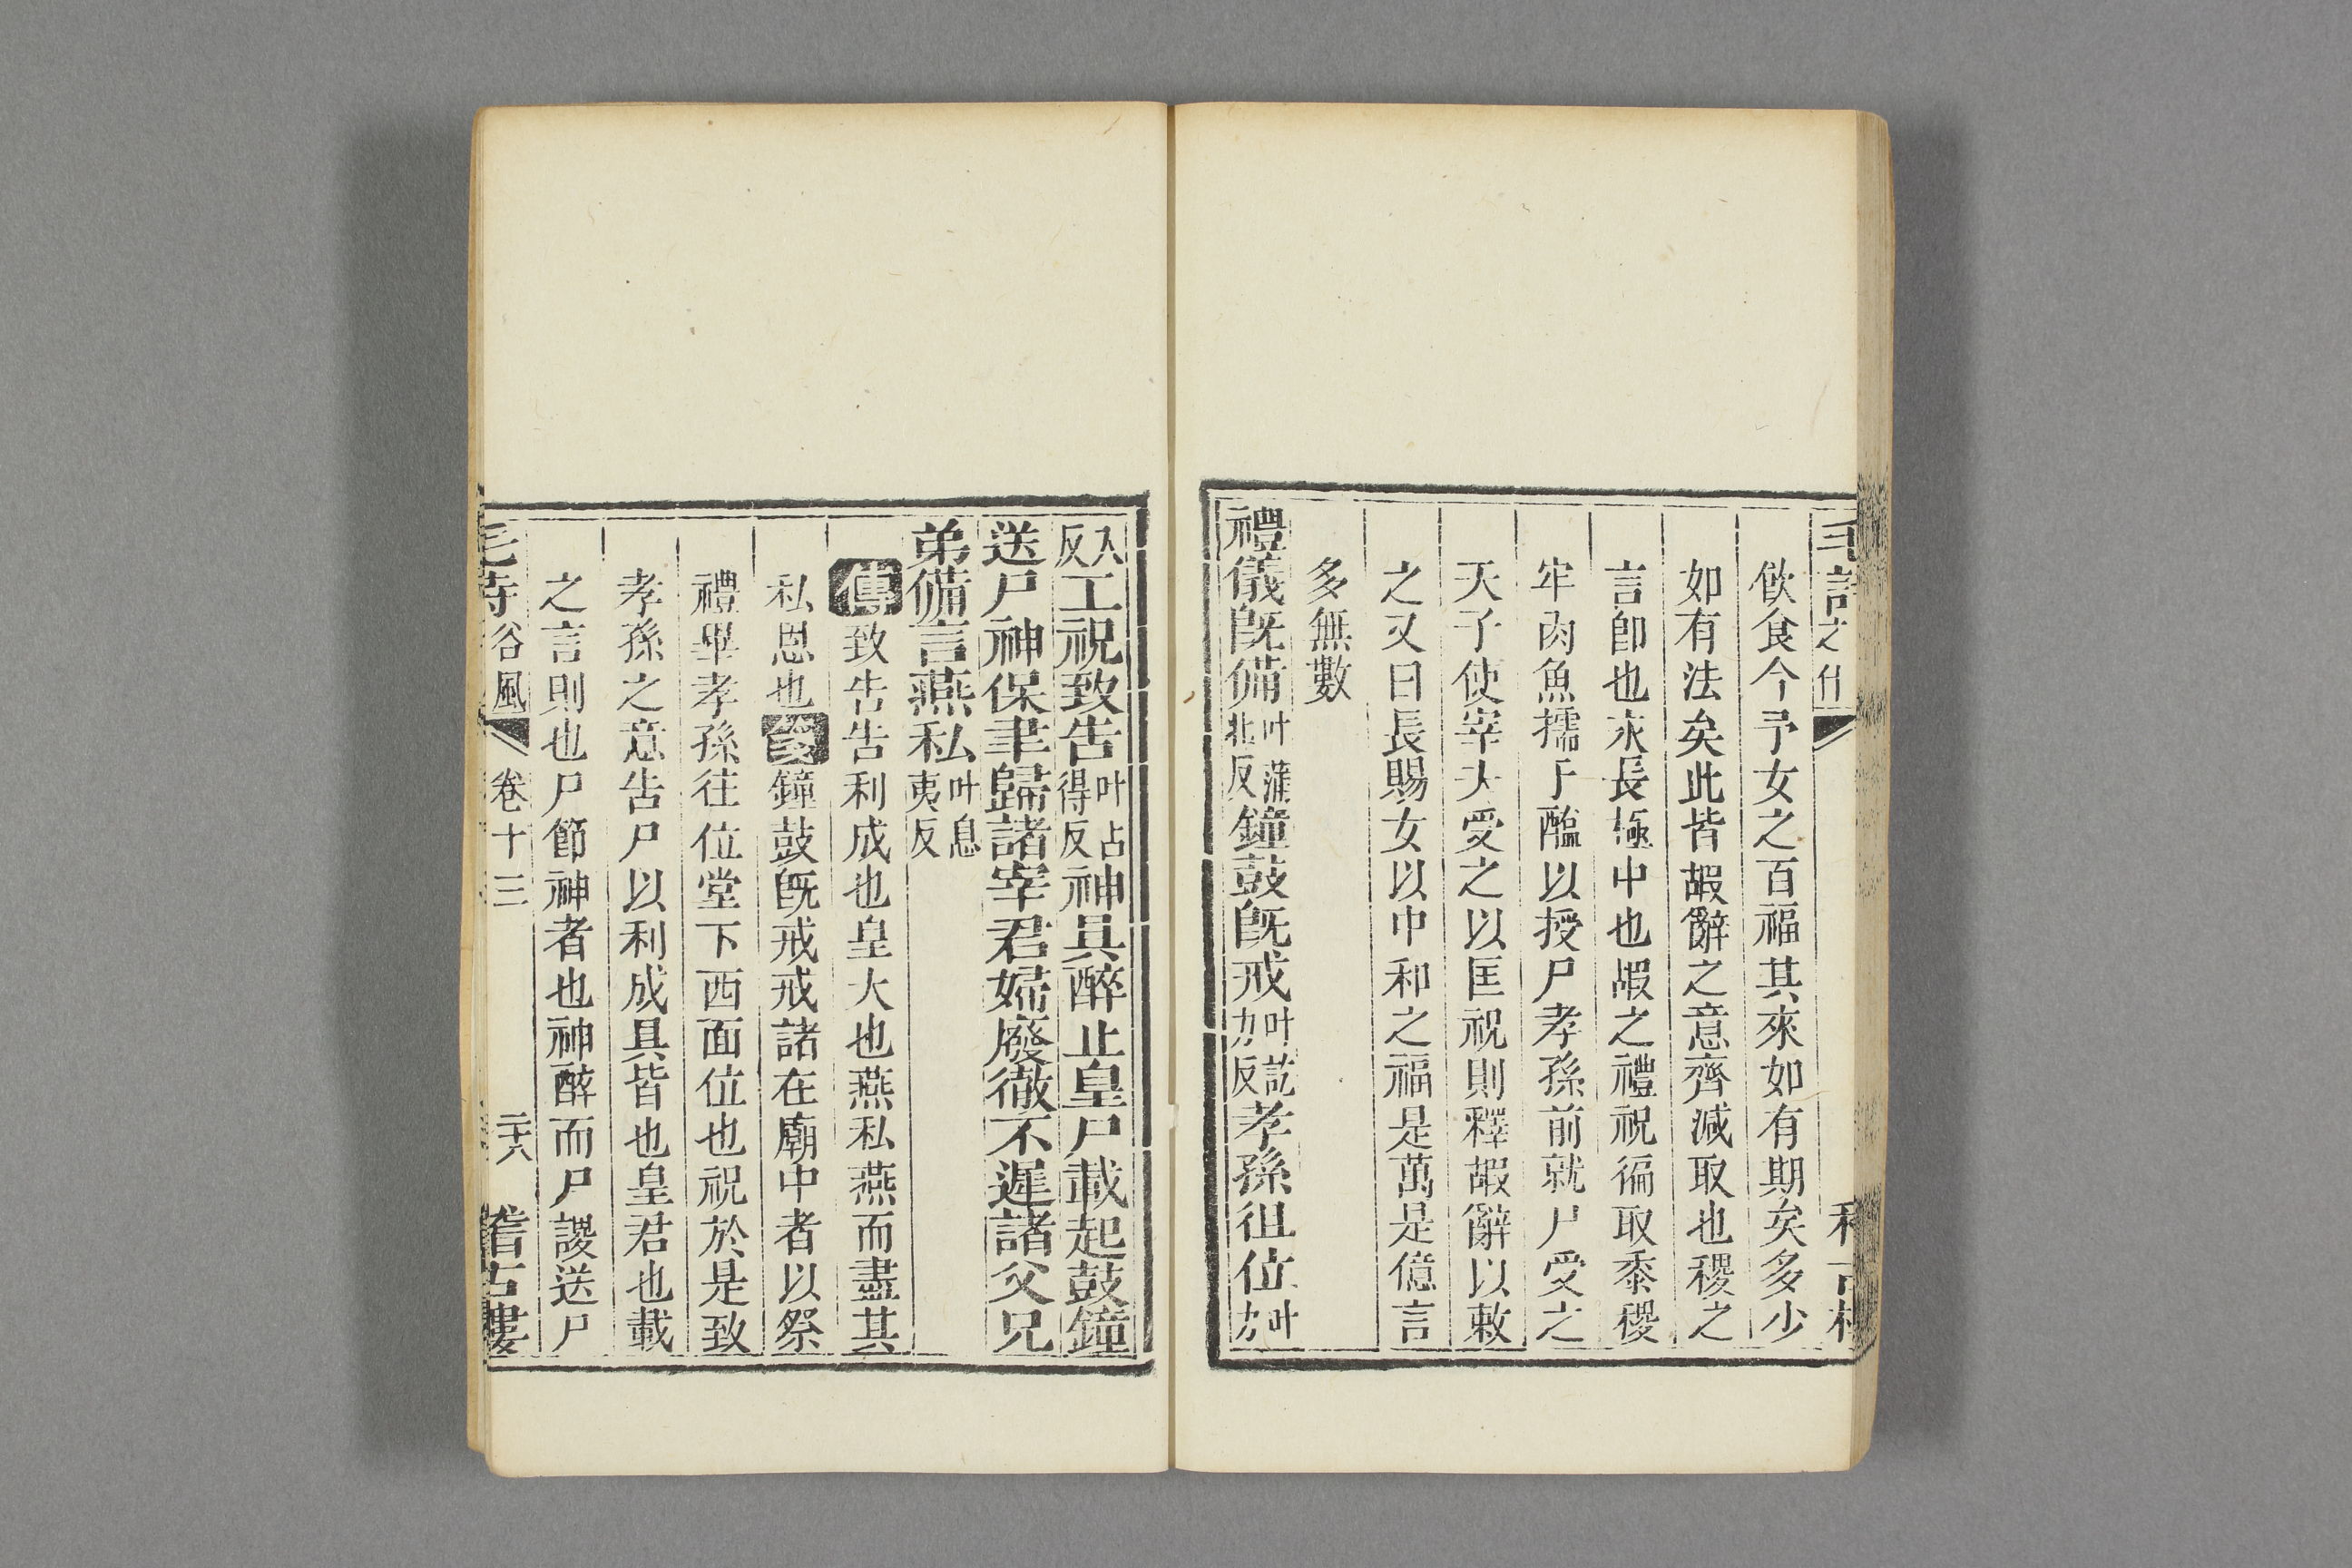 毛詩之什
飲食今予女之百福其來如有期矣多少
如有法矣此皆嘏辭之意齊減取也稷之
言卽也永長極中也嘏之禮祝徧取黍稷
牢肉魚擩于醢以授尸孝孫前就尸受之
天子使宰夫受之以匡祝則釋嘏辭以敕
之又曰長賜女以中和之福是萬是億言
多無數
禮儀旣備叶蒲北反鐘鼓旣戒叶訖力反孝孫徂位叶力
入反工祝致告叶占得反神具醉止皇尸載起鼓鐘
送尸神保聿歸諸宰君婦廢徹不遲諸父兄
弟備言燕私叶息夷反
傳致告告利成也皇大也燕私燕而盡其
私恩也箋鐘鼓旣戒戒諸在廟中者以祭
禮畢孝孫往位堂下西面位也祝於是致
孝孫之意告尸以利成具皆也皇君也載
之言則也尸節神者也神醉而尸謖送尸
毛詩谷風 卷十三 二十八 稽古樓